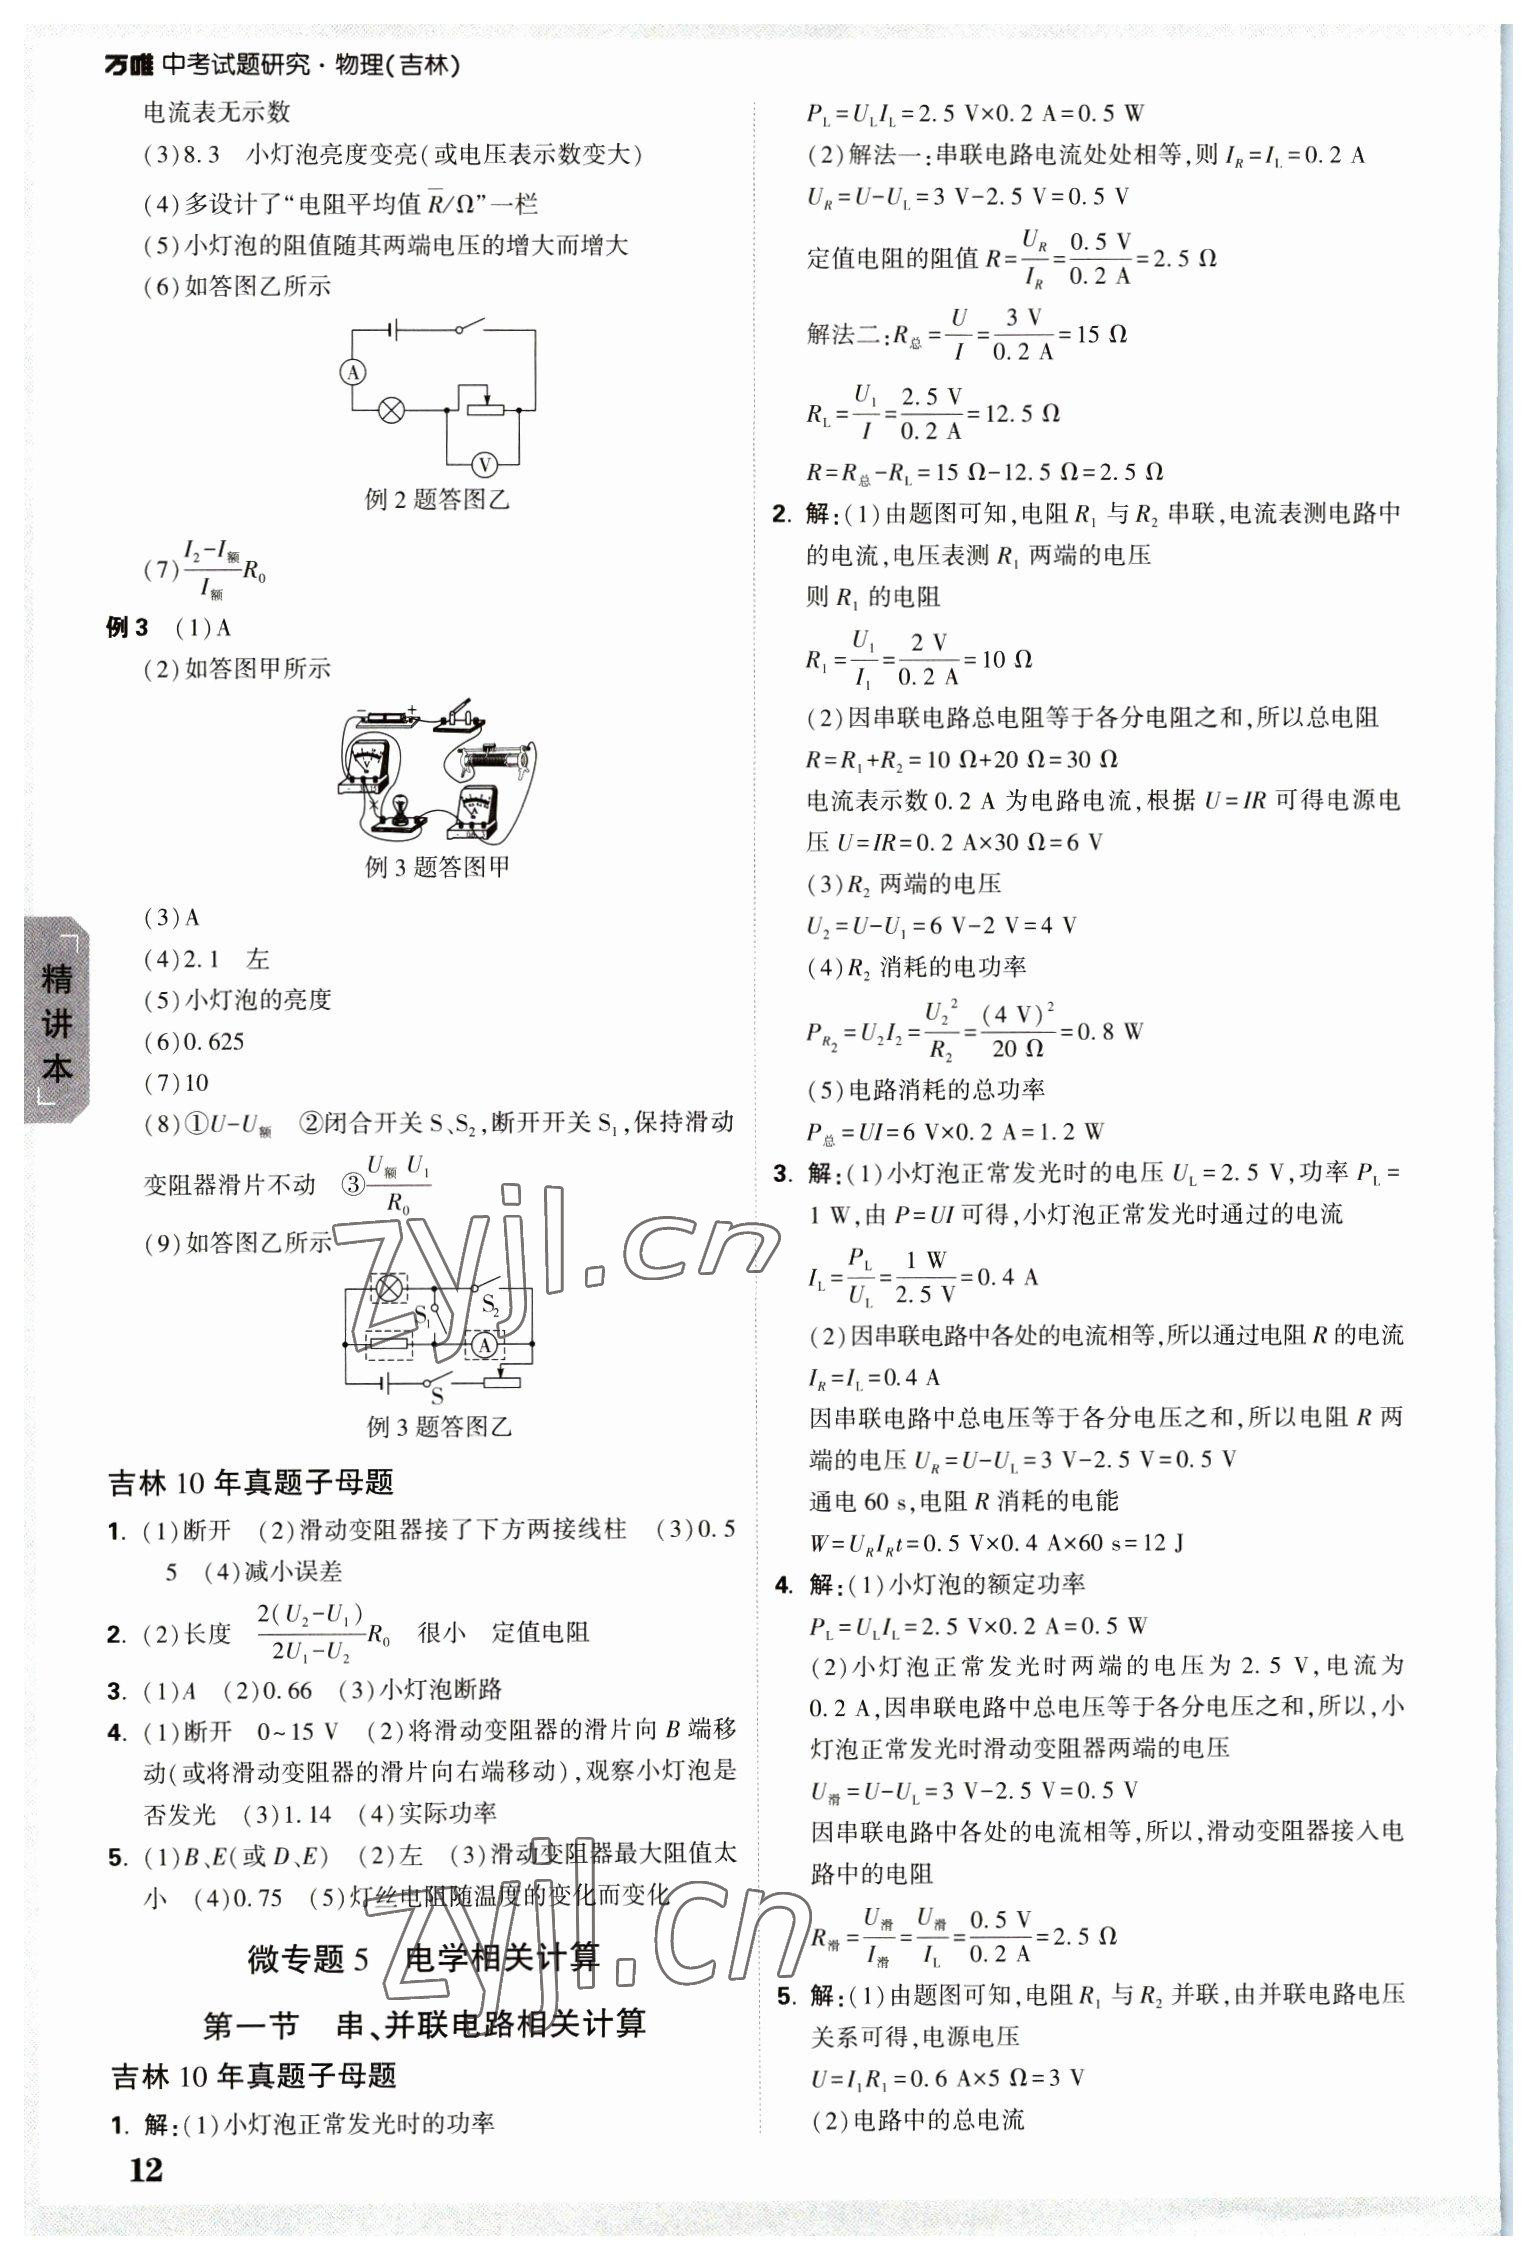 万唯 中考试题研究·物理(吉林)
电流表无示数
(3)8.3 小灯泡亮度变亮(或电压表示数变大)
(4)多设计了“电阻平均值 R̄/Ω”一栏
(5)小灯泡的阻值随其两端电压的增大而增大
(6)如答图乙所示
A
V
例 2 题答图乙
(7)(I₂-I额)/I额 R₀
例 3 (1)A
(2)如答图甲所示
- +
V
A
例 3 题答图甲
(3)A
(4)2.1 左
(5)小灯泡的亮度
(6)0.625
(7)10
(8)①U-U额 ②闭合开关 S、S₂,断开开关 S₁,保持滑动
变阻器滑片不动 ③U额 U₁/R₀
(9)如答图乙所示
S₁ S₂
A
S
例 3 题答图乙
吉林 10 年真题子母题
1. (1)断开 (2)滑动变阻器接了下方两接线柱 (3)0.5
5 (4)减小误差
2. (2)长度 2(U₂-U₁)/(2U₁-U₂) R₀ 很小 定值电阻
3. (1)A (2)0.66 (3)小灯泡断路
4. (1)断开 0~15 V (2)将滑动变阻器的滑片向 B 端移
动(或将滑动变阻器的滑片向右端移动),观察小灯泡是
否发光 (3)1.14 (4)实际功率
5. (1)B、E(或 D、E) (2)左 (3)滑动变阻器最大阻值太
小 (4)0.75 (5)灯丝电阻随温度的变化而变化
微专题 5 电学相关计算
第一节 串、并联电路相关计算
吉林 10 年真题子母题
1. 解:(1)小灯泡正常发光时的功率
12
精讲本
P_L=U_LI_L=2.5 V×0.2 A=0.5 W
(2)解法一:串联电路电流处处相等,则 I_R=I_L=0.2 A
U_R=U-U_L=3 V-2.5 V=0.5 V
定值电阻的阻值 R=U_R/I_R=0.5 V/0.2 A=2.5 Ω
解法二:R总=U/I=3 V/0.2 A=15 Ω
R_L=U₁/I=2.5 V/0.2 A=12.5 Ω
R=R总-R_L=15 Ω-12.5 Ω=2.5 Ω
2. 解:(1)由题图可知,电阻 R₁ 与 R₂ 串联,电流表测电路中
的电流,电压表测 R₁ 两端的电压
则 R₁ 的电阻
R₁=U₁/I₁=2 V/0.2 A=10 Ω
(2)因串联电路总电阻等于各分电阻之和,所以总电阻
R=R₁+R₂=10 Ω+20 Ω=30 Ω
电流表示数 0.2 A 为电路电流,根据 U=IR 可得电源电
压 U=IR=0.2 A×30 Ω=6 V
(3)R₂ 两端的电压
U₂=U-U₁=6 V-2 V=4 V
(4)R₂ 消耗的电功率
P_R₂=U₂I₂=U₂²/R₂=(4 V)²/20 Ω=0.8 W
(5)电路消耗的总功率
P总=UI=6 V×0.2 A=1.2 W
3. 解:(1)小灯泡正常发光时的电压 U_L=2.5 V,功率 P_L=
1 W,由 P=UI 可得,小灯泡正常发光时通过的电流
I_L=P_L/U_L=1 W/2.5 V=0.4 A
(2)因串联电路中各处的电流相等,所以通过电阻 R 的电流
I_R=I_L=0.4 A
因串联电路中总电压等于各分电压之和,所以电阻 R 两
端的电压 U_R=U-U_L=3 V-2.5 V=0.5 V
通电 60 s,电阻 R 消耗的电能
W=U_RI_Rt=0.5 V×0.4 A×60 s=12 J
4. 解:(1)小灯泡的额定功率
P_L=U_LI_L=2.5 V×0.2 A=0.5 W
(2)小灯泡正常发光时两端的电压为 2.5 V,电流为
0.2 A,因串联电路中总电压等于各分电压之和,所以,小
灯泡正常发光时滑动变阻器两端的电压
U滑=U-U_L=3 V-2.5 V=0.5 V
因串联电路中各处的电流相等,所以,滑动变阻器接入电
路中的电阻
R滑=U滑/I滑=U滑/I_L=0.5 V/0.2 A=2.5 Ω
5. 解:(1)由题图可知,电阻 R₁ 与 R₂ 并联,由并联电路电压
关系可得,电源电压
U=I₁R₁=0.6 A×5 Ω=3 V
(2)电路中的总电流
zyjl.cn
zyjl.cn